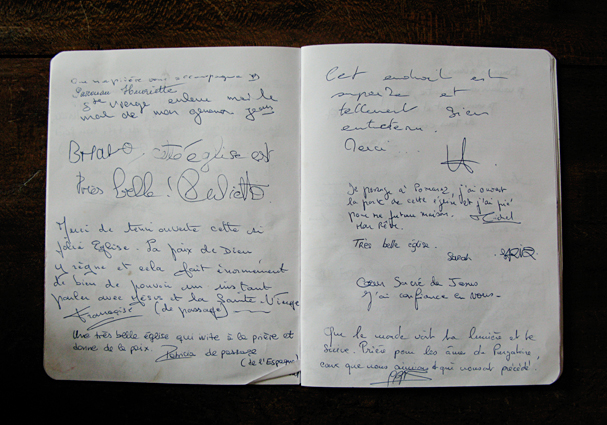 Ste Vierge enlever moi le
mal de mon genoux
BRAVO cette église est
très belle! Juliette
Merci de tenir ouverte cette si
jolie Eglise. La paix de Dieu
y règne et cela fait énormément
de bien de pouvoir un instant
parler avec Jésus et la Sainte-Vierge
Françoise (de passage)
Une très belle église qui invite à la prière et
donne de la paix Patricia de passage
(de l'Espagne)
Cet endroit est
superbe et
tellement bien
entretenu.
Merci
Je passage à Pomarez, j'ai ouvert
la porte de cette église et j'ai prié
pour ma future maison.
Mon Rêve.
Très belle église.
Sarah
Cœur Sacré de Jésus
J'ai confiance en vous.
Que le monde voit ta lumière et te
suive. Prière pour les âmes du Purgatoire,
ceux que nous aimons et qui nous ont précédé.